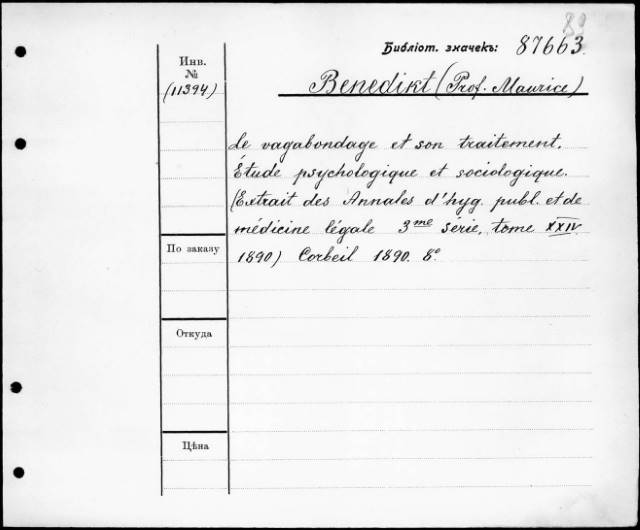 Библіот. значекъ: 87663.
Инв.
№
(11394)
Benedikt (Prof. Maurice)
Le vagabondage et son traitement.
Étude psychologique et sociologique.
(Extrait des Annales d'hyg. publ. et de
médicine légale 3me série, tome XXIV.
1890) Corbeil 1890. 8°.
По заказу
Откуда
Цѣна